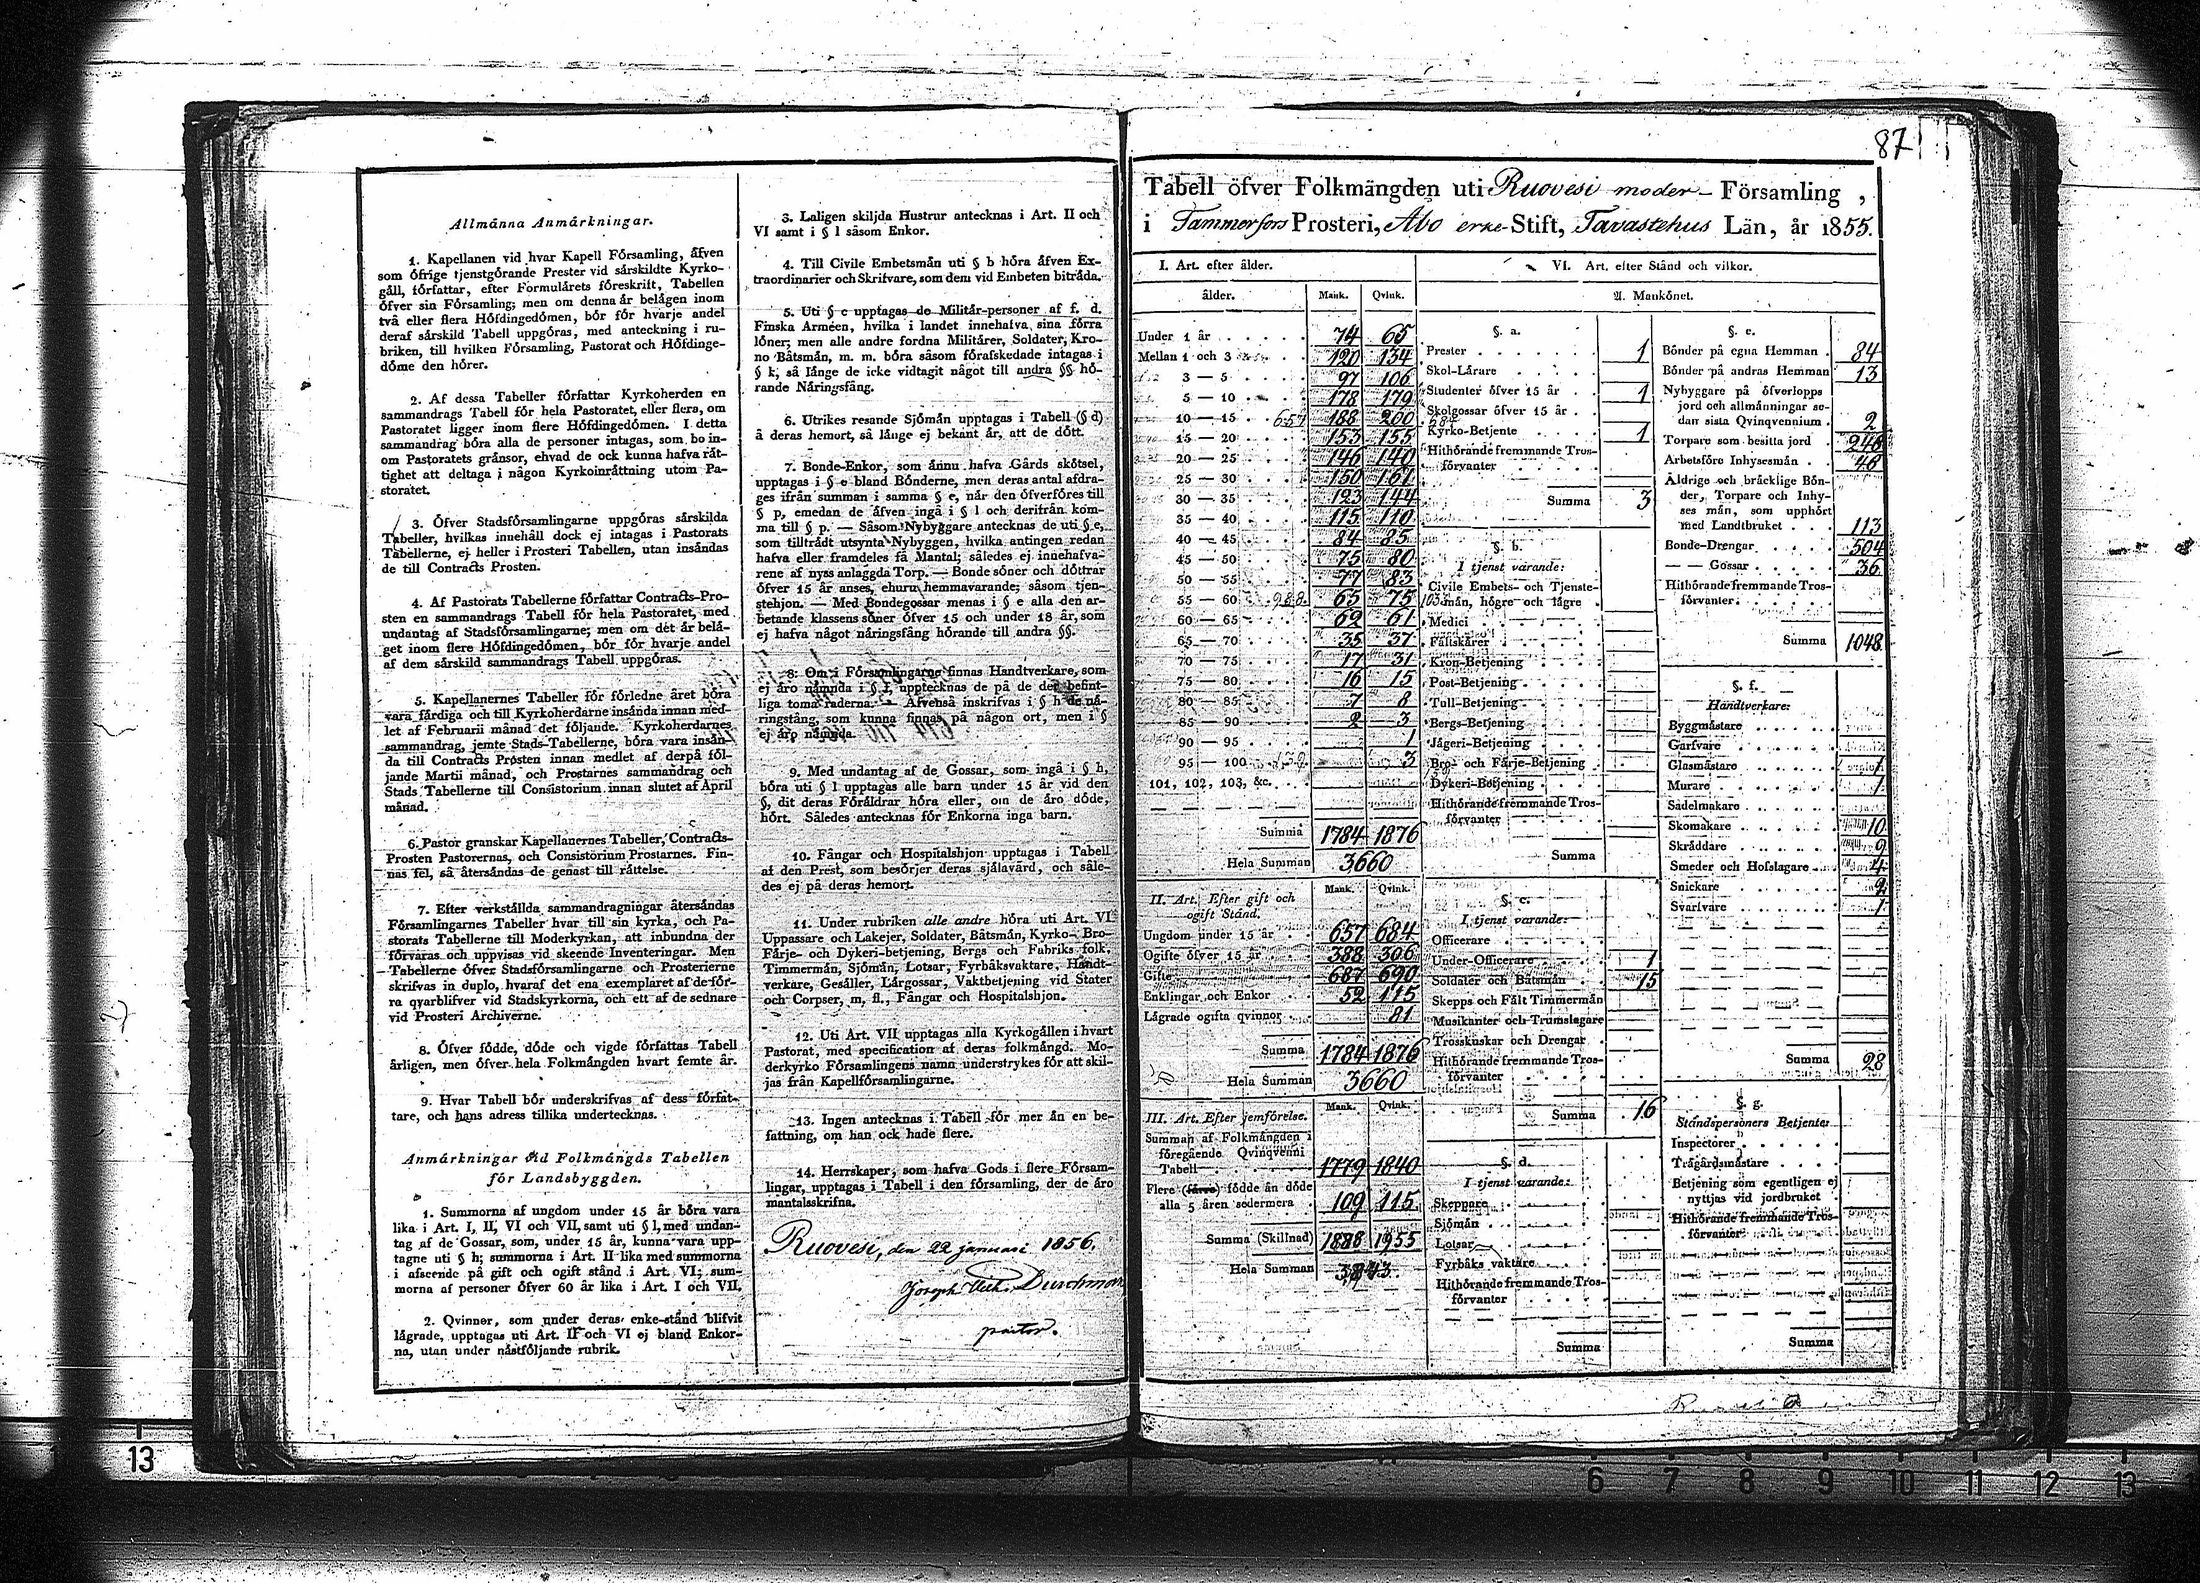 87
Allmänna Anmärkningar.
1. Kapellanen vid hvar Kapell Församling, äfven
som öfrige tjenstgörande Prester vid särskildte Kyrko-
gäll, författar, efter Formulärets föreskrift, Tabellen
öfver sin Församling; men om denna är belägen inom
två eller flera Höfdingedömen, bör för hvarje andel
deraf särskild Tabell uppgöras, med anteckning i ru-
briken, till hvilken Församling, Pastorat och Höfdinge-
döme den hörer.
2. Af dessa Tabeller författar Kyrkoherden en
sammandrags Tabell för hela Pastoratet, eller flera, om
Pastoratet ligger inom flere Höfdingedömen. I detta
sammandrag böra alla de personer intagas, som bo in-
om Pastoratets gränsor, ehvad de ock kunna hafva rät-
tighet att deltaga i någon Kyrkoinrättning utom Pa-
storatet.
3. Öfver Stadsförsamlingarne uppgöras särskilda
Tabeller, hvilkas innehåll dock ej intagas i Pastorats
Tabellerne, ej heller i Prosteri Tabellen, utan insändas
de till Contracts Prosten.
4. Af Pastorats Tabellerne författar Contracts-Pro-
sten en sammandrags Tabell för hela Pastoratet, med
undantag af Stadsförsamlingarne; men om det är belä-
get inom flere Höfdingedömen, bör för hvarje andel
af dem särskild sammandrags Tabell uppgöras.
5. Kapellanernes Tabeller för förledne året böra
vara färdiga och till Kyrkoherdarne insända innan med-
let af Februarii månad det följande. Kyrkoherdarnes
sammandrag, jemte Stads-Tabellerne, böra vara insän-
da till Contracts Prosten innan medlet af derpå föl-
jande Martii månad, och Prostarnes sammandrag och
Stads Tabellerne till Consistorium innan slutet af April
månad.
6. Pastor granskar Kapellanernes Tabeller, Contracts-
Prosten Pastorernas, och Consistorium Prostarnes. Fin-
nas fel, så återsändas de genast till rättelse.
7. Efter verkställda sammandragningar återsändas
Församlingarnes Tabeller hvar till sin kyrka, och Pa-
storats Tabellerne till Moderkyrkan, att inbundna der
förvaras och uppvisas vid skeende Inventeringar. Men
Tabellerne öfver Stadsförsamlingarne och Prosterierne
skrifvas in duplo, hvaraf det ena exemplaret af de för-
ra qvarblifver vid Stadskyrkorna, och ett af de sednare
vid Prosteri Archiverne.
8. Öfver födde, döde och vigde författas Tabell
årligen, men öfver hela Folkmängden hvart femte år.
9. Hvar Tabell bör underskrifvas af dess förfat-
tare, och hans adress tillika undertecknas.
Anmärkningar vid Folkmängds Tabellen
för Landsbyggden.
1. Summorna af ungdom under 15 år böra vara
lika i Art. I, II, VI och VII, samt uti § l, med undan-
tag af de Gossar, som, under 15 år, kunna vara upp-
tagne uti § h; summorna i Art. II lika med summorna
i afseende på gift och ogift stånd i Art. VI; sum-
morna af personer öfver 60 år lika i Art. I och VII.
2. Qvinner, som under deras enke-stånd blifvit
lägrade, upptagas uti Art. II och VI ej bland Enkor-
na, utan under nästföljande rubrik.
3. Laligen skiljda Hustrur antecknas i Art. II och
VI samt i § l såsom Enkor.
4. Till Civile Embetsmän uti § b höra äfven Ex-
traordinarier och Skrifvare, som dem vid Embeten biträda.
5. Uti § c upptagas de Militär-personer af f. d.
Finska Arméen, hvilka i landet innehafva sina förra
löner; men alle andre fordna Militärer, Soldater, Kro-
no Båtsmän, m. m. böra såsom förafskedade intagas i
§ k, så länge de icke vidtagit något till andra §§ hö-
rande Näringsfång.
6. Utrikes resande Sjömän upptagas i Tabell (§ d)
å deras hemort, så länge ej bekant är, att de dött.
7. Bonde-Enkor, som ännu hafva Gårds skötsel,
upptagas i § e bland Bönderne, men deras antal afdra-
ges ifrån summan i samma § e, när den öfverföres till
§ p, emedan de äfven ingå i § l och derifrån kom-
ma till § p. — Såsom Nybyggare antecknas de uti § e,
som tillträdt utsynta Nybyggen, hvilka antingen redan
hafva eller framdeles få Mantal; således ej innehafva-
rene af nyss anlaggda Torp. — Bonde söner och döttrar
öfver 15 år anses, ehuru hemmavarande, såsom tjen-
stehjon. — Med Bondegossar menas i § e alla den ar-
betande klassens söner öfver 15 och under 18 år, som
ej hafva något näringsfång hörande till andra §§.
8. Om i Församlingarne finnas Handtverkare, som
ej äro nämnda i § f, upptecknas de på de der befint-
liga toma raderna. Äfvenså inskrifvas i § h de nä-
ringsfång, som kunna finnas på någon ort, men i §
ej äro nämnda.
9. Med undantag af de Gossar, som ingå i § h,
böra uti § l upptagas alle barn under 15 år vid den
§, dit deras Föräldrar höra eller, om de äro döde,
hört. Således antecknas för Enkorna inga barn.
10. Fångar och Hospitalshjon upptagas i Tabell
af den Prest, som besörjer deras själavård, och såle-
des ej på deras hemort.
11. Under rubriken alle andre höra uti Art. VI
Uppassare och Lakejer, Soldater, Båtsmän, Kyrko- Bro-
Färje- och Dykeri-betjening, Bergs och Fabriks folk,
Timmermän, Sjömän, Lotsar, Fyrbåksvaktare, Handt-
verkare, Gesäller, Lärgossar, Vaktbetjening vid Stater
och Corpser, m. fl., Fångar och Hospitalshjon.
12. Uti Art. VII upptagas alla Kyrkogällen i hvart
Pastorat, med specification af deras folkmängd. Mo-
derkyrko Församlingens namn understrykes för att skil-
jas från Kapellförsamlingarne.
13. Ingen antecknas i Tabell för mer än en be-
fattning, om han ock hade flere.
14. Herrskaper, som hafva Gods i flere Försam-
lingar, upptagas i Tabell i den församling, der de äro
mantalsskrifna.
Ruovesi, den 22 januari 1856.
Joseph Wilh. Durchman
pastor.
Tabell öfver Folkmängden uti Ruovesi moder- Församling,
i Tammerfors Prosteri, Abo erke-Stift, Tavastehus Län, år 1855.
I. Art. efter ålder.
ålder. Mank. Qvink.
Under 1 år 74 65
Mellan 1 och 3 120 134
3 — 5 97 106
5 — 10 178 179
10 — 15 657 188 200 684
15 — 20 153 155
20 — 25 146 140
25 — 30 150 161
30 — 35 123 144
35 — 40 115 110
40 — 45 84 85
45 — 50 75 80
50 — 55 77 83
55 — 60 988 65 75
60 — 65 62 61
65 — 70 35 37
70 — 75 17 31
75 — 80 16 15
80 — 85 7 8
85 — 90 2 3
90 — 95 1
95 — 100 3
101, 102, 103, &c.
Summa 1784 1876
Hela Summan 3660
II. Art. Efter gift och
ogift Stånd. Mank. Qvink.
Ungdom under 15 år 657 684
Ogifte öfver 15 år 388 306
Gifte 687 690
Enklingar och Enkor 52 115
Lägrade ogifta qvinnor 81
Summa 1784 1876
Hela Summan 3660
III. Art. Efter jemförelse. Mank. Qvink.
Summan af Folkmängden i
föregående Qvinqvenni
Tabell 1779 1840
Flere (färre) födde än döde
alla 5 åren sedermera 109 115
Summa (Skillnad) 1888 1955
Hela Summan 3843
VI. Art. efter Stånd och vilkor.
A. Mankönet.
§. a.
Prester 1
Skol-Lärare
Studenter öfver 15 år 1
Skolgossar öfver 15 år
Kyrko-Betjente 1
Hithörande fremmande Tros-
förvanter
Summa 3
§. b.
I tjenst varande:
Civile Embets- och Tjenste-
män, högre och lägre
Medici
Fältskärer
Kron-Betjening
Post-Betjening
Tull-Betjening
Bergs-Betjening
Jägeri-Betjening
Bro- och Färje-Betjening
Dykeri-Betjening
Hithörande fremmande Tros-
förvanter
Summa
§. c.
I tjenst varande:
Officerare
Under-Officerare 1
Soldater och Båtsmän 15
Skepps och Fält Timmermän
Musikanter och Trumslagare
Trosskuskar och Drengar
Hithörande fremmande Tros-
förvanter
Summa 16
§. d.
I tjenst varande:
Skeppare
Sjömän
Lotsar
Fyrbåks vaktare
Hithörande fremmande Tros-
förvanter
Summa
§. e.
Bönder på egna Hemman 84
Bönder på andras Hemman 13
Nybyggare på öfverlopps
jord och allmänningar se-
dan sista Qvinqvennium 2
Torpare som besitta jord 248
Arbetsföre Inhysesmän 48
Åldrige och bräcklige Bön-
der, Torpare och Inhy-
ses män, som upphört
med Landtbruket 113
Bonde-Drengar 504
— — Gossar 36
Hithörande fremmande Tros-
förvanter
Summa 1048
§. f.
Handtverkare:
Byggmästare
Garfvare
Glasmästare 1
Murare 1
Sadelmakare
Skomakare 10
Skräddare 9
Smeder och Hofslagare 4
Snickare 2
Svarfvare 1
Summa 28
§. g.
Ståndspersoners Betjente
Inspectorer
Trägårdsmästare
Betjening som egentligen ej
nyttjas vid jordbruket
Hithörande fremmande Tros-
förvanter
Summa
13 6 7 8 9 10 11 12 13